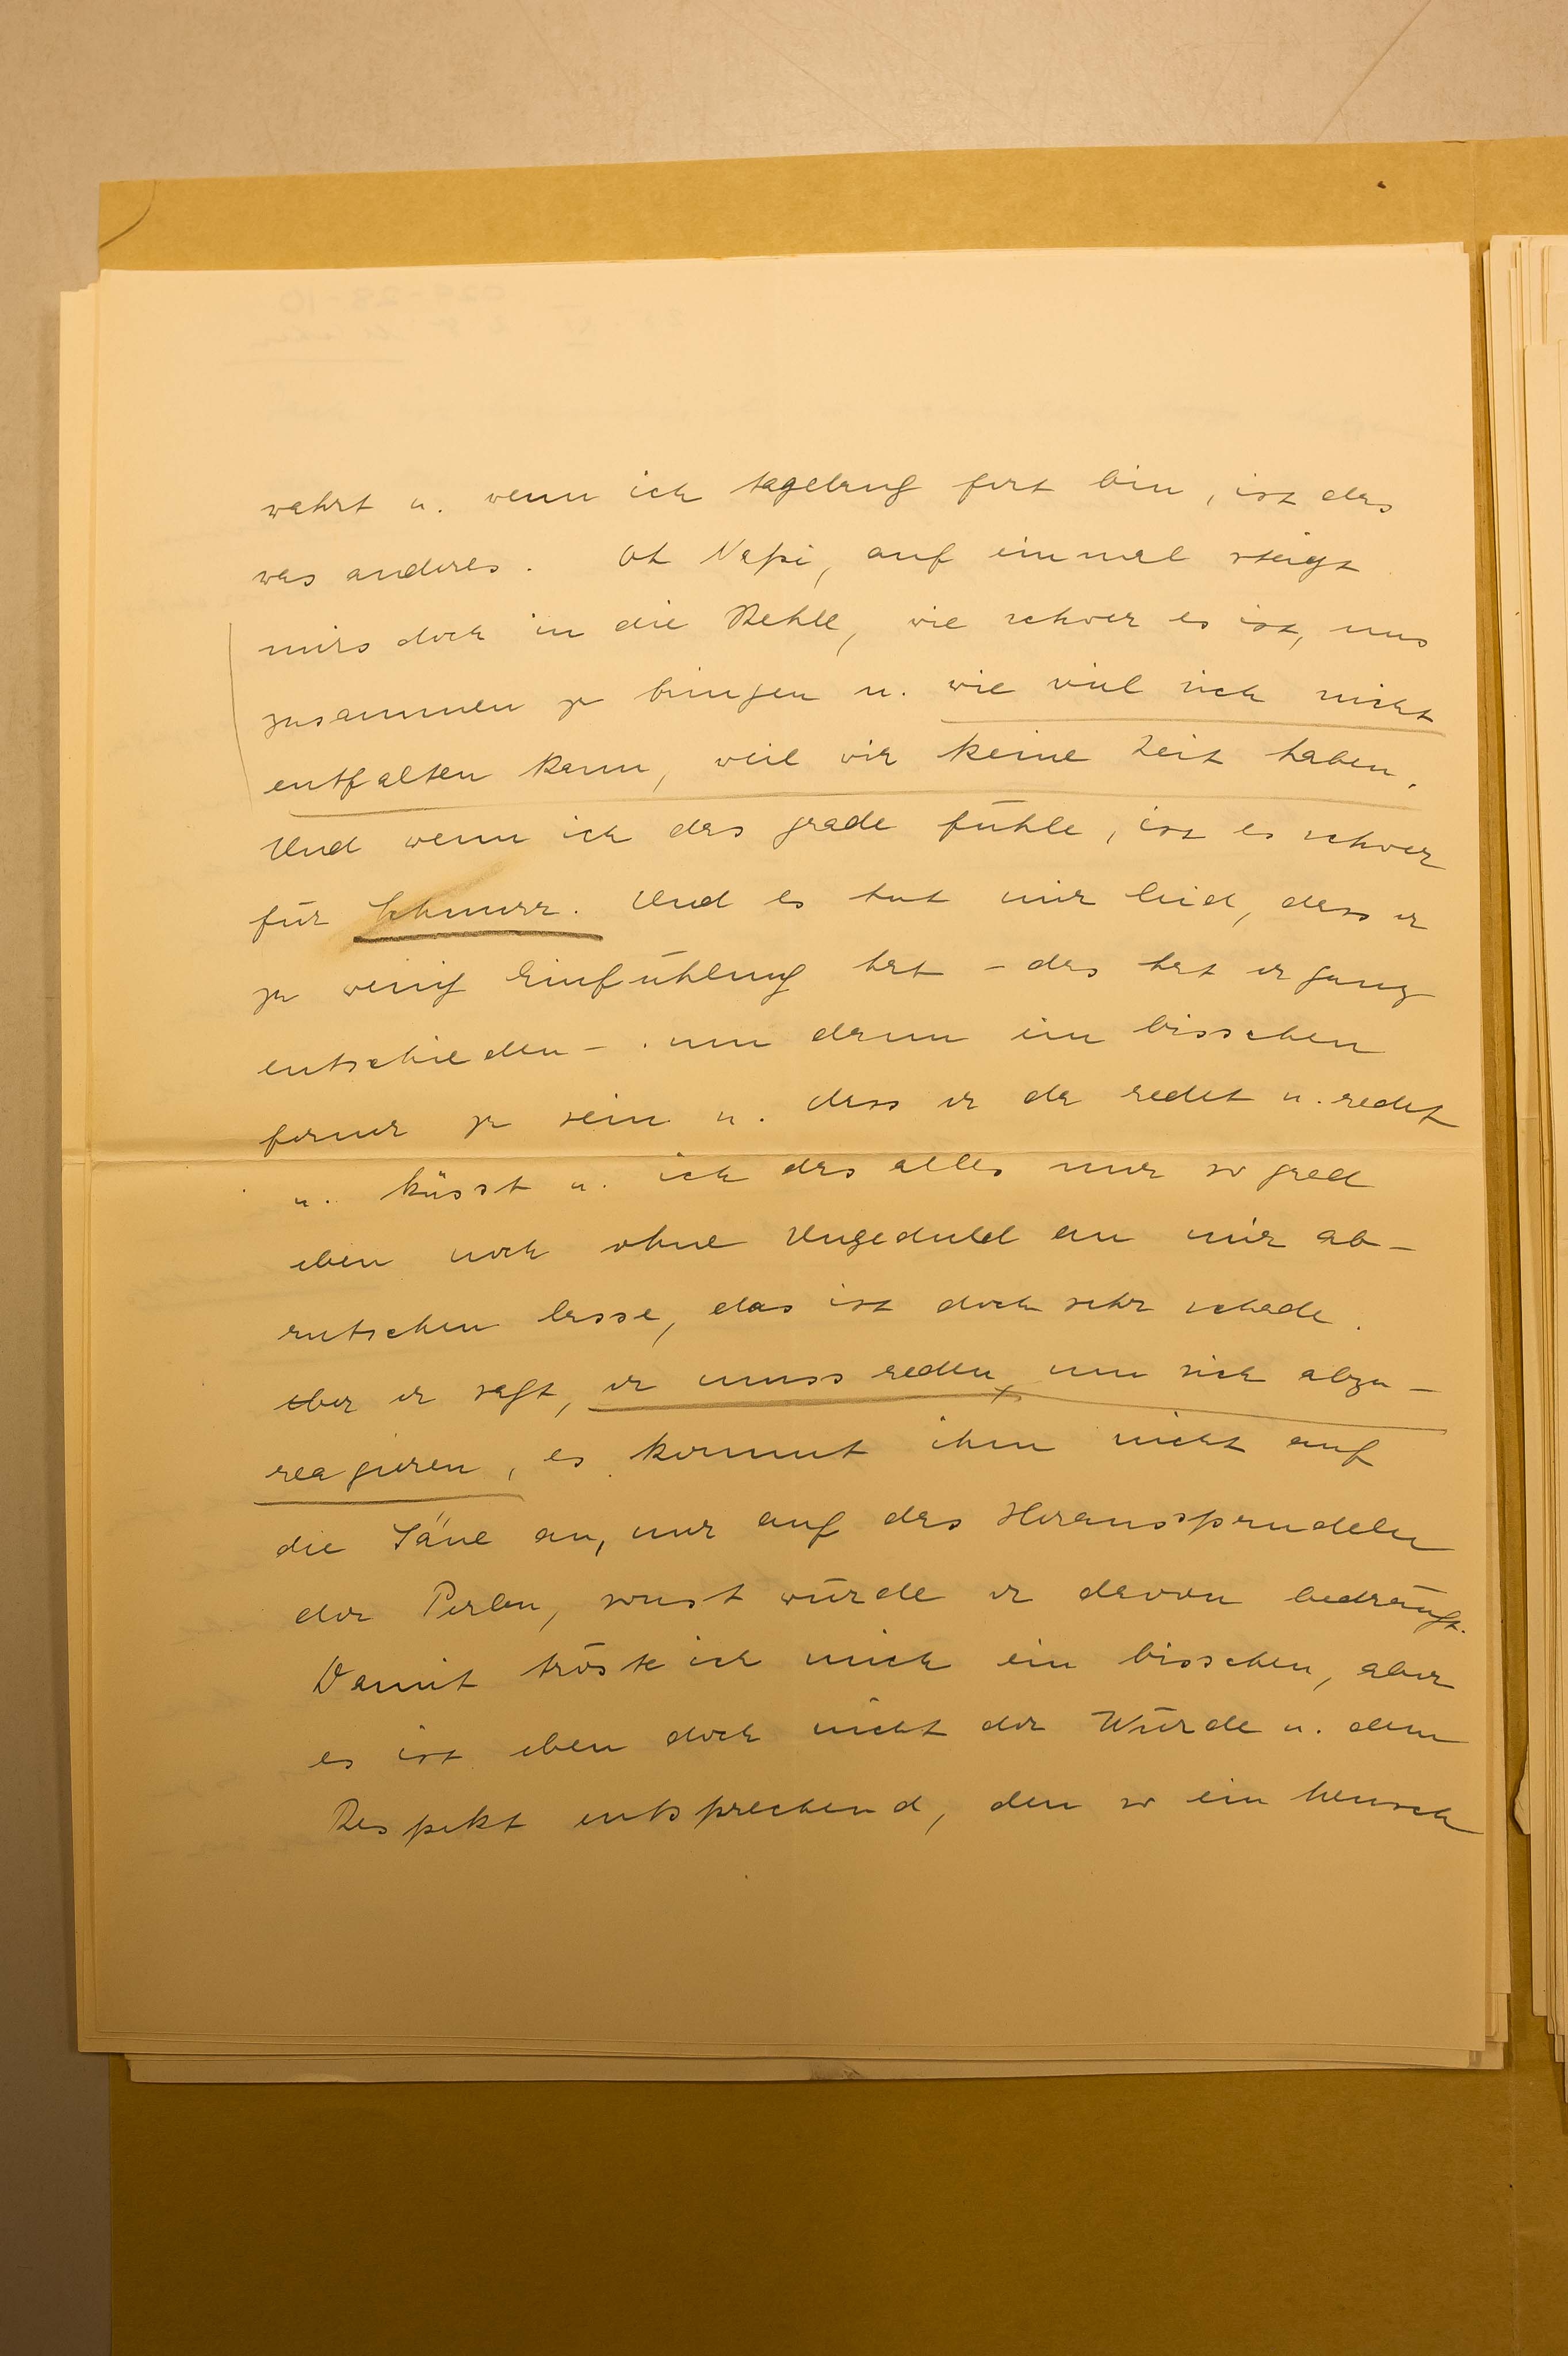 wahrt u. wenn ich tagelang fort bin, ist das
was anderes. Oh Napi, auf einmal steigt
mirs doch in die Kehle, wie schwer es ist, uns
zusammen zu bringen u. wie viel sich nicht
entfalten kann, weil wir keine Zeit haben.
Und wenn ich das grade fühle, ist es schwer
für Schnurr. Und es tut mir leid, dass er
zu wenig Einfühlung hat – das hat er ganz
entschieden – um dann ein bisschen
ferner zu sein u. dass er da redet u. redet
u. küsst u. ich das alles nur so grad
eben noch ohne Ungeduld an mir ab-
rutschen lasse, das ist doch sehr schade.
Aber er sagt, er muss reden, um sich abzu-
reagieren, es kommt ihm nicht auf
die Säue an, nur auf das Heraussprudeln
der Perlen, sonst würde er davon bedrängt.
Damit tröste ich mich ein bisschen, aber
es ist eben doch nicht der Würde u. dem
Respekt entsprechend, den so ein Mensch